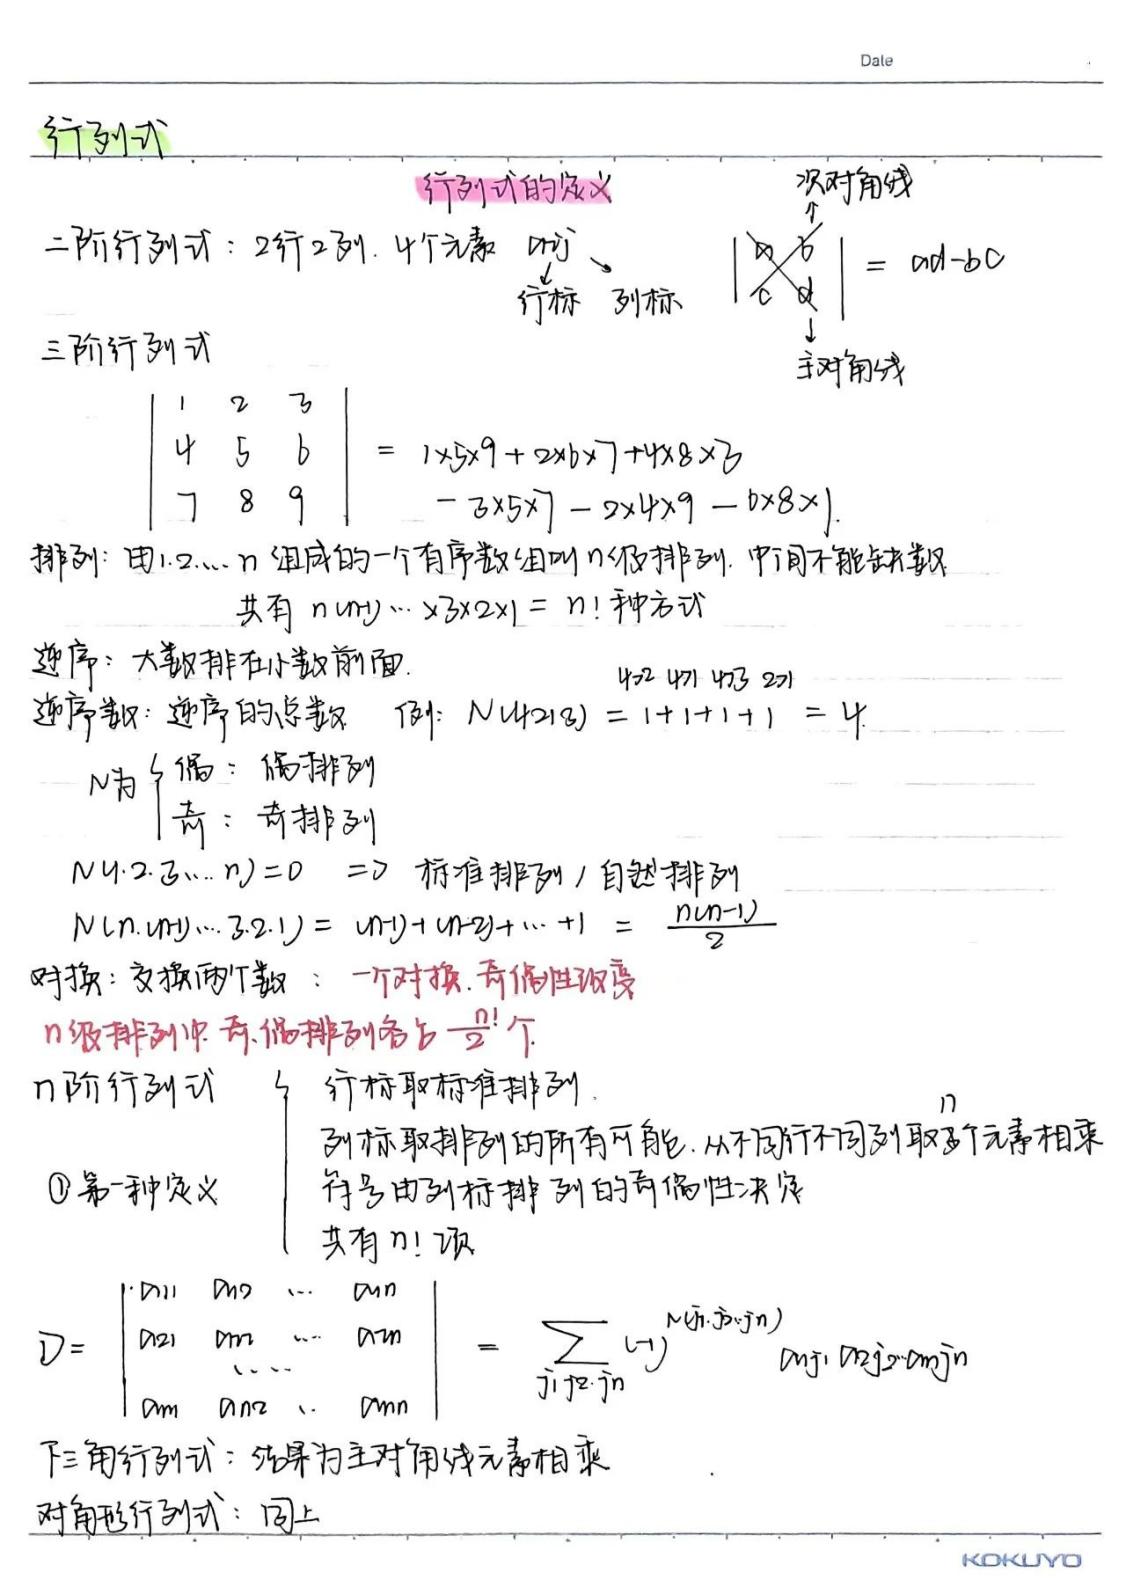 Date
行列式
行列式的定义
次对角线
二阶行列式：2行2列. 4个元素 aij
行标 列标
| a b |
| c d | = ad-bc
主对角线
三阶行列式
| 1 2 3 |
| 4 5 6 | = 1×5×9+2×6×7+4×8×3
| 7 8 9 | -3×5×7-2×4×9-6×8×1.
排列：由1.2.... n 组成的一个有序数组叫n级排列. 中间不能缺数
共有 n(n-1)…×3×2×1= n! 种方式
逆序：大数排在小数前面.
4>2 4>1 4>3 2>1
逆序数：逆序的总数 例：N(4213) = 1+1+1+1 = 4.
N为 { 偶：偶排列
奇：奇排列
N(1.2.3.... n)=0 => 标准排列/自然排列
N(n.(n-1)…3.2.1) = (n-1)+(n-2)+…+1 = n(n-1)/2
对换：交换两个数：一个对换.奇偶性改变
n级排列中.奇.偶排列各占 n!/2 个.
n阶行列式 { 行标取标准排列.
列标取排列的所有可能.从不同行不同列取n个元素相乘
①第一种定义 符号由列标排列的奇偶性决定
共有n! 项
D= | a11 a12 … a1n |
| a21 a22 … a2n | = ∑ (-1)^N(j1.j2…jn) a1j1 a2j2…anjn
j1j2…jn
| …. |
| an1 an2 .. ann |
下三角行列式：结果为主对角线元素相乘
对角形行列式：同上
KOKUYO